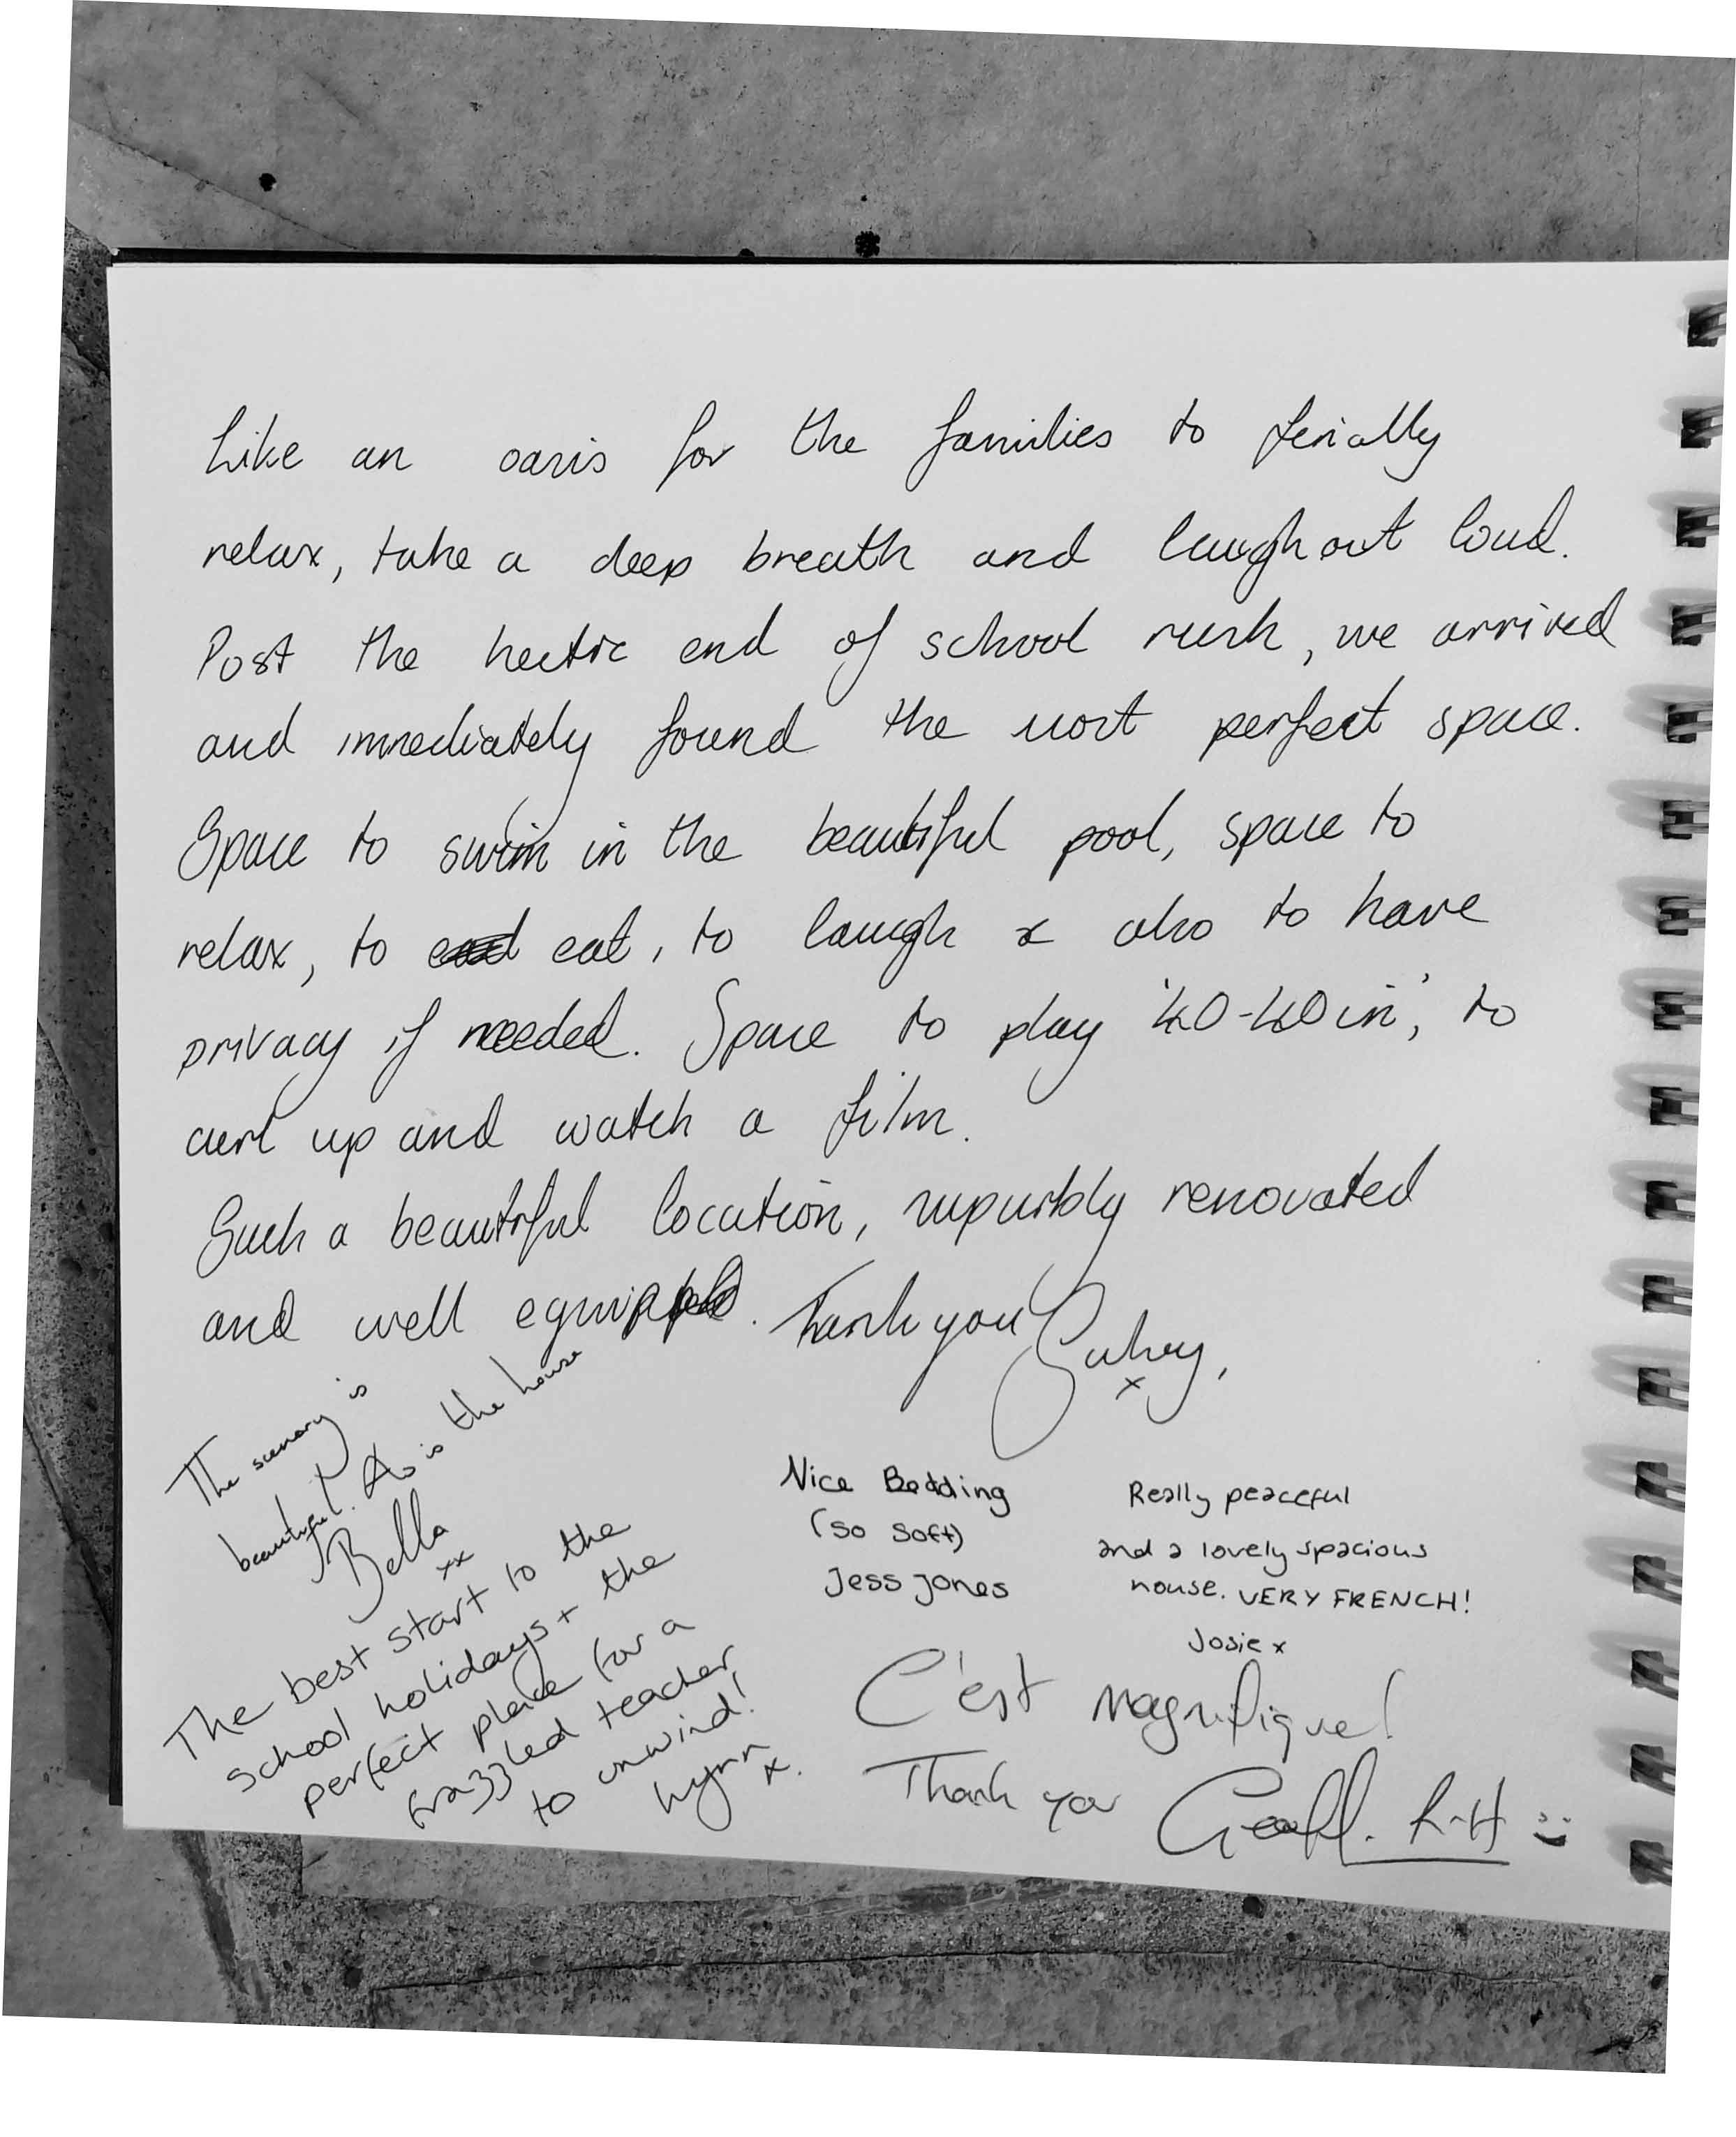 Like an oasis for the families to finally
relax, take a deep breath and laugh out loud.
Post the hectic end of school rush, we arrived
and immediately found the most perfect space.
Space to swim in the beautiful pool, space to
relax, to eat, to laugh & also to have
privacy if needed. Space to play '40-40 in', to
curl up and watch a film.
Such a beautiful location, superbly renovated
and well equipped. Thank you
The scenary is
beautiful. As is the house
Bella
xx
The best start to the
school holidays + the
perfect place for a
frazzled teacher
to unwind!
Lynn
x.
Nice Bedding
(so soft)
Jess Jones
Really peaceful
and a lovely spacious
house. VERY FRENCH!
Josie x
C'est magnifique!
Thank you Geoff. R-H